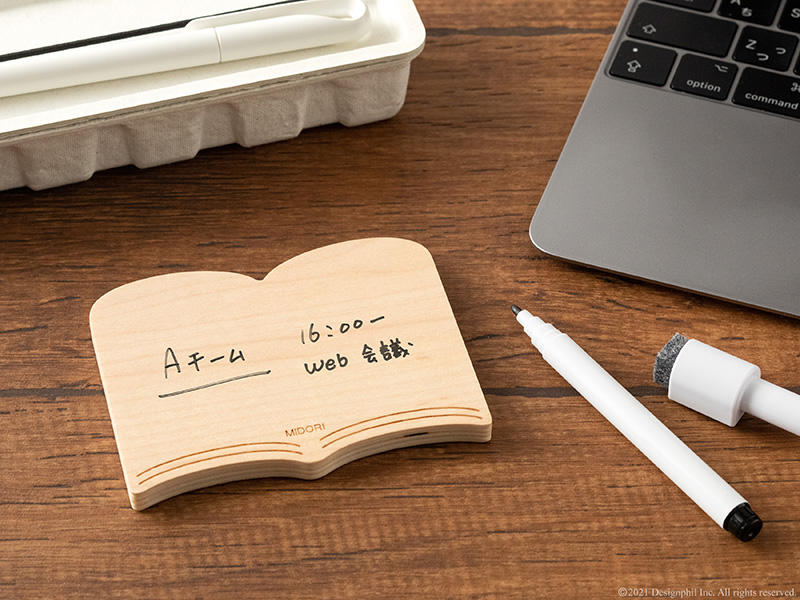 Aチーム
16:00ー
Web 会議
MIDORI
option
command
Z っ
つ
©2021 Designphil Inc. All rights reserved.